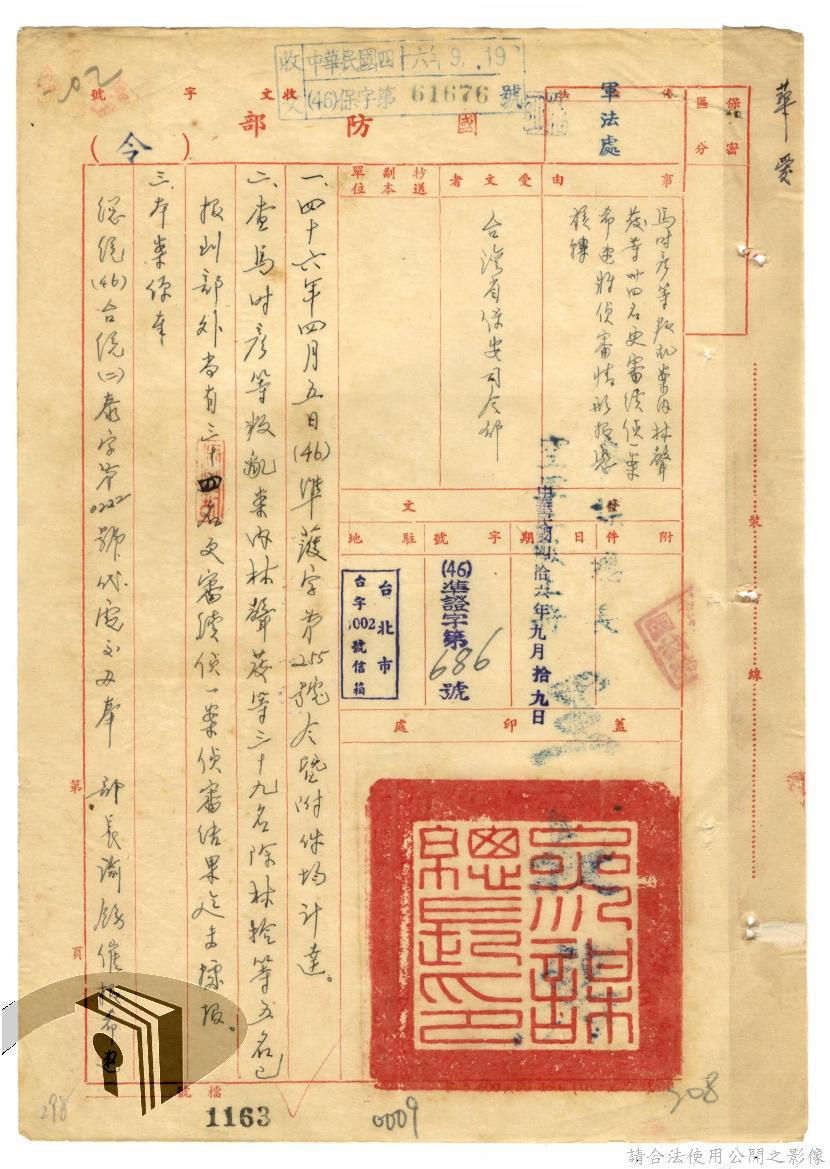 華愛
保密
區分
軍法處
收文
中華民國四十六年9.19
(46)保字第61676號
收文字號
國防部
(令)
事由
馬時彥等叛亂案內林聲
發等卅四名更審續偵一案
希速將偵審情形報憑
核轉
受文者
台灣省保安司令部
抄送副本單位
發文
附件
日期
中華民國四拾六年九月拾九日
字號
(46)準證字第686號
駐地
台北市
台字5002號信箱
蓋印處
參謀
總長印
一、四十六年四月五日(46)準蔆字第255號令暨附件均計達。
二、查馬時彥等叛亂案內林聲發等三十九名除林擒等五名已
報到部外尚有三十四名更審續偵一案偵審結果迄未據報。
三、本案係奉
總統(46)台統(二)泰字第0222號代電交办奉 部長諭飭催報希迅
裝
線
第
頁
檔號
1163
0009
298
308
02
請合法使用公開之影像